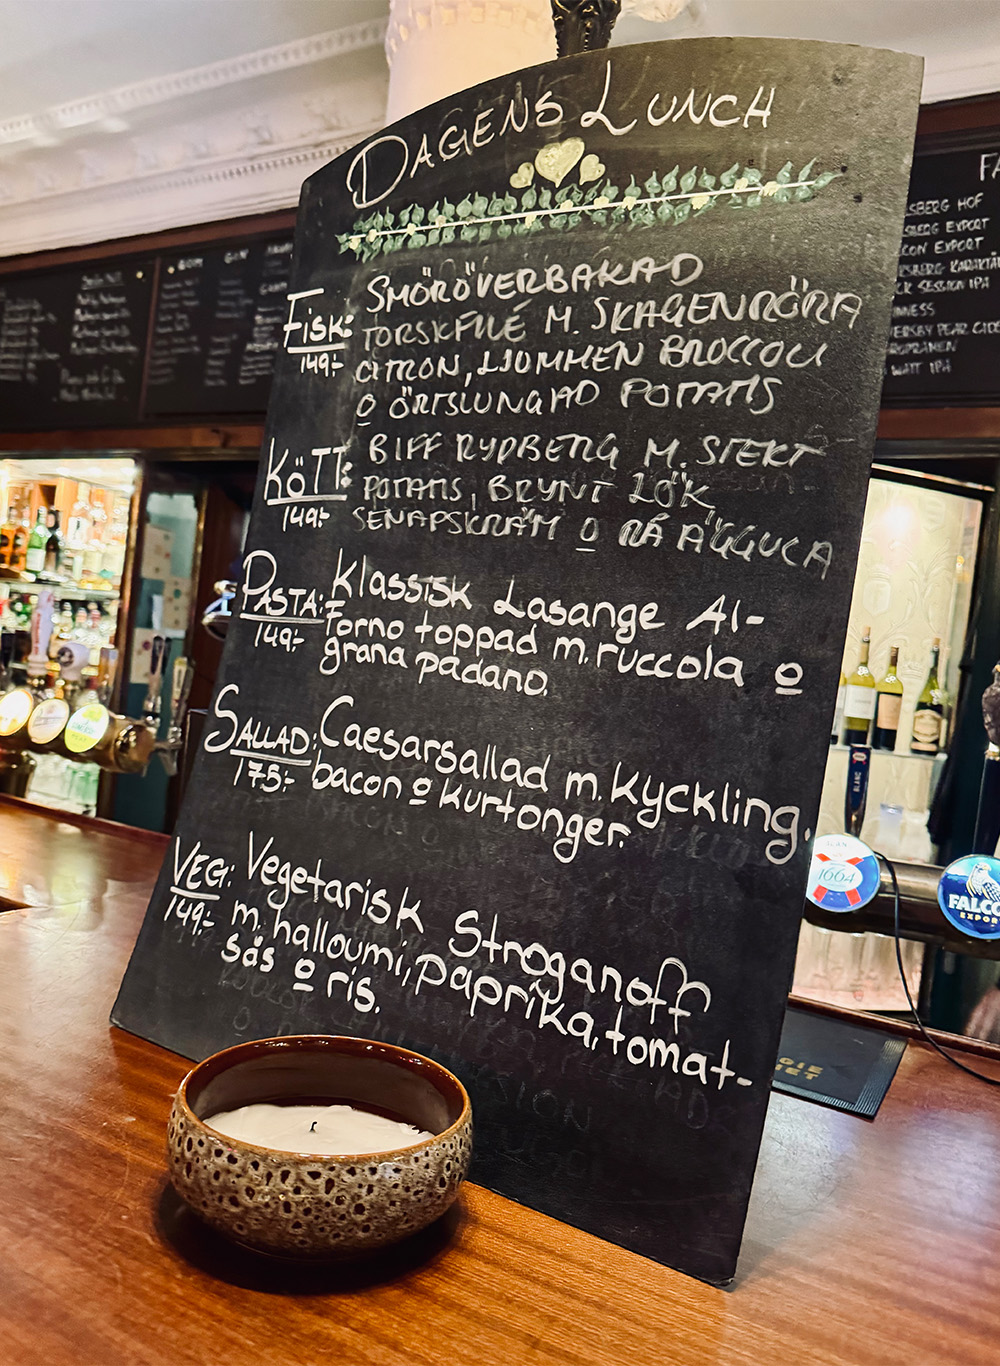 DAGENS LUNCH
FISK: SMÖRÖVERBAKAD
149:- TORSKFILÉ M. SKAGENRÖRA
CITRON, LJUMMEN BROCCOLI
O ÖRTSLUNGAD POTATIS
KÖTT: BIFF RYDBERG M. STEKT
149:- POTATIS, BRYNT LÖK
SENAPSKRÄM O RÅ ÄGGULA
PASTA: Klassisk Lasange Al-
149:- Forno toppad m. ruccola o
grana padano.
SALLAD: Caesarsallad m. Kyckling.
175:- bacon o kurtonger.
VEG: Vegetarisk Stroganoff
149:- m. halloumi, paprika, tomat-
sås o ris.
FA
SBERG HOF
SBERG EXPORT
CON EXPORT
SBERG KARAKTÄ
CK SESSION IPA
NNESS
ERSBY PEAR CIDE
WATT IPA
BLANC
1664
FALCO
EXPOR